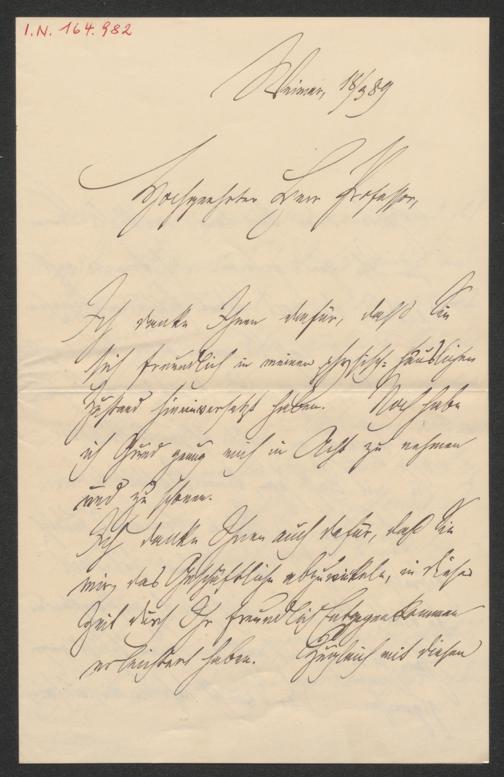 I.N. 164.982
Weimar, 18/3 89
Hochgeehrter Herr Professor,
Ich danke Ihnen dafür, daß Sie
sich freundlich in meinen physisch-häuslichen
Zustand hineinversetzt haben. Noch habe
ich Grund genug mich in Acht zu nehmen
und zu schonen.
Ich danke Ihnen auch dafür, daß Sie
mir, das Geschäftliche abzuwickeln, in dieser
Zeit durch Ihr freundlich Entgegenkommen
erleichtert haben. Zugleich mit diesen